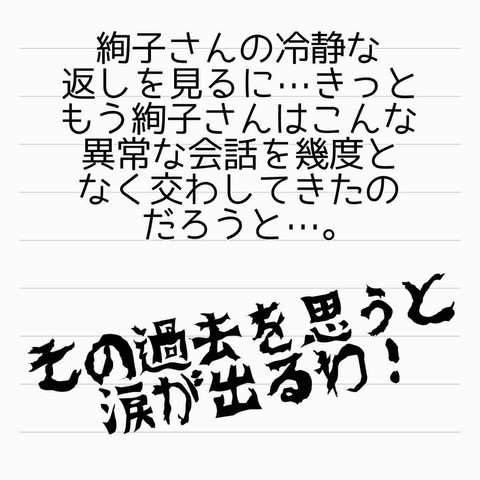 絢子さんの冷静な
返しを見るに…きっと
もう絢子さんはこんな
異常な会話を幾度と
なく交わしてきたの
だろうと…。
その過去を思うと
涙が出るわ!